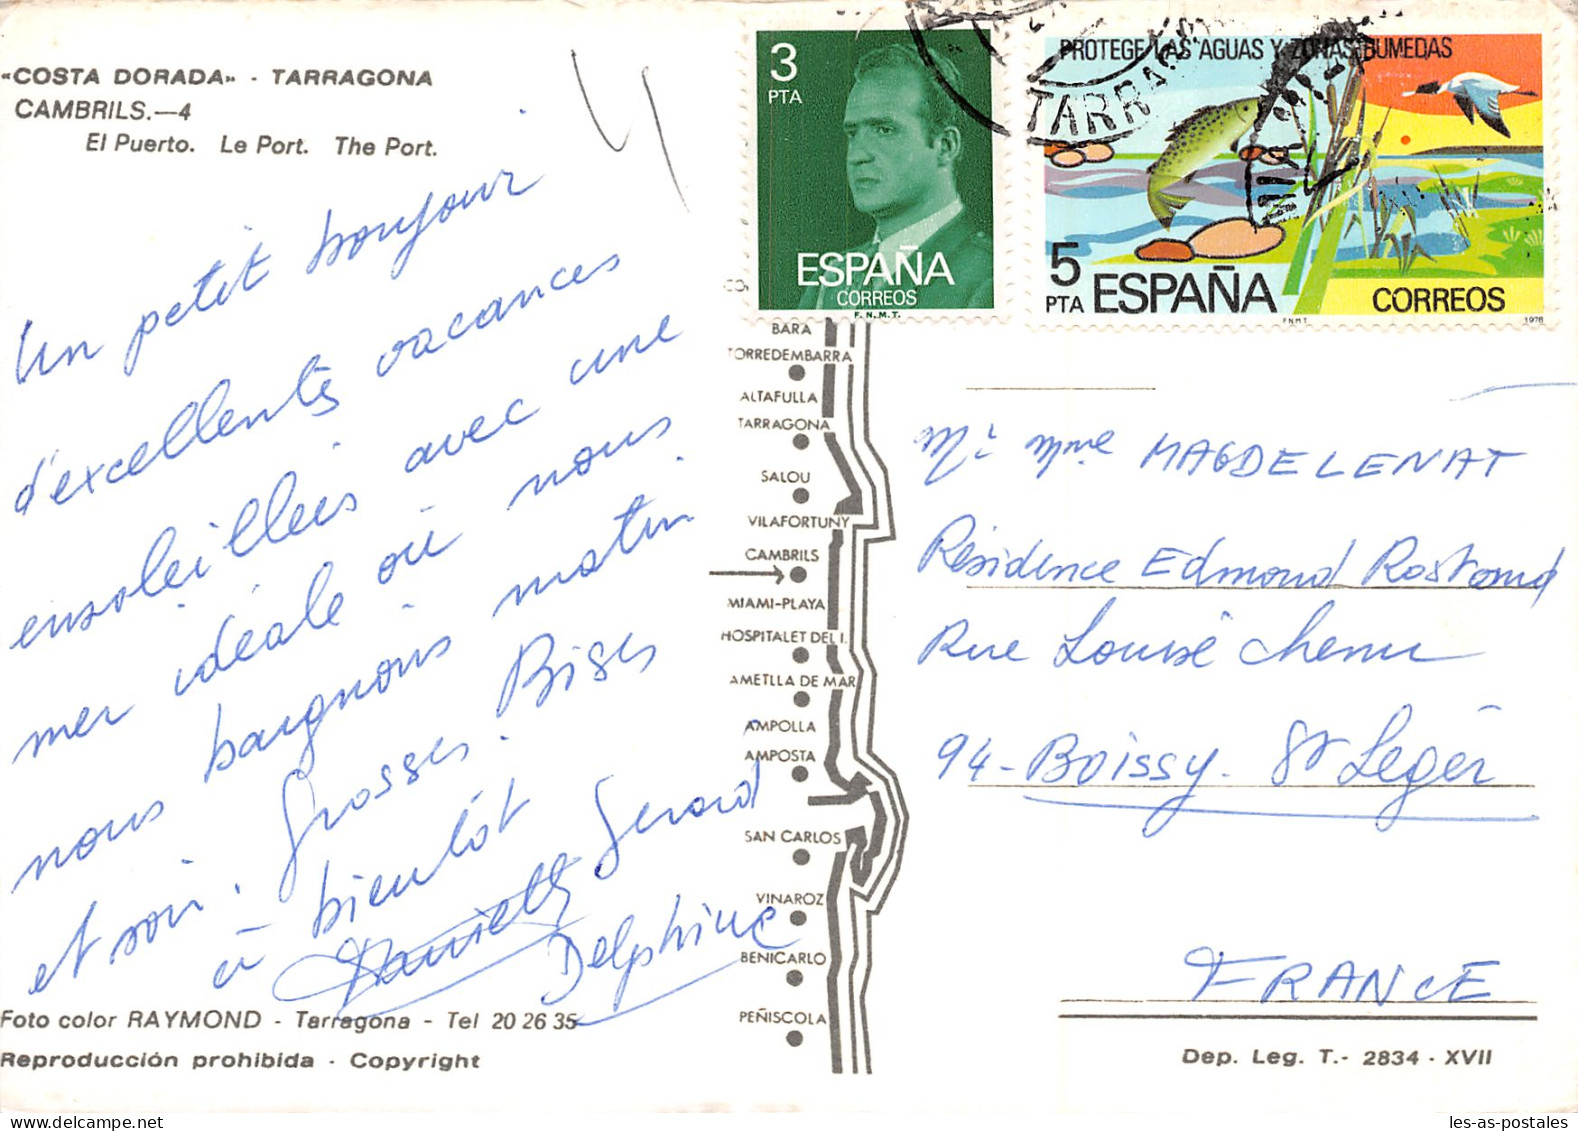 «COSTA DORADA» - TARRAGONA
CAMBRILS.—4
El Puerto. Le Port. The Port.
Un petit bonjour
d'excellentes vacances
ensoleillées avec une
mer idéale où nous
nous baignons matin
et soir. Grosses. Bises
à bientôt Gerard
Danielle
Delphine
Foto color RAYMOND - Tarragona - Tel 20 26 35
Reproducción prohibida - Copyright
3
PTA
ESPAÑA
CORREOS
F.N.M.T.
PROTEGE LAS AGUAS Y ZONAS HUMEDAS
TARRAG
5
PTA ESPAÑA
CORREOS
F N M T
1978
BARA
TORREDEMBARRA
ALTAFULLA
TARRAGONA
SALOU
VILAFORTUNY
CAMBRILS
MIAMI-PLAYA
HOSPITALET DEL I.
AMETLLA DE MAR
AMPOLLA
AMPOSTA
SAN CARLOS
VINAROZ
BENICARLO
PEÑISCOLA
Mr Mme MAGDELENAT
Résidence Edmond Rostand
Rue Louise Chenu
94-Boissy. St Leger
FRANCE
Dep. Leg. T.- 2834 - XVII
les-as-postales